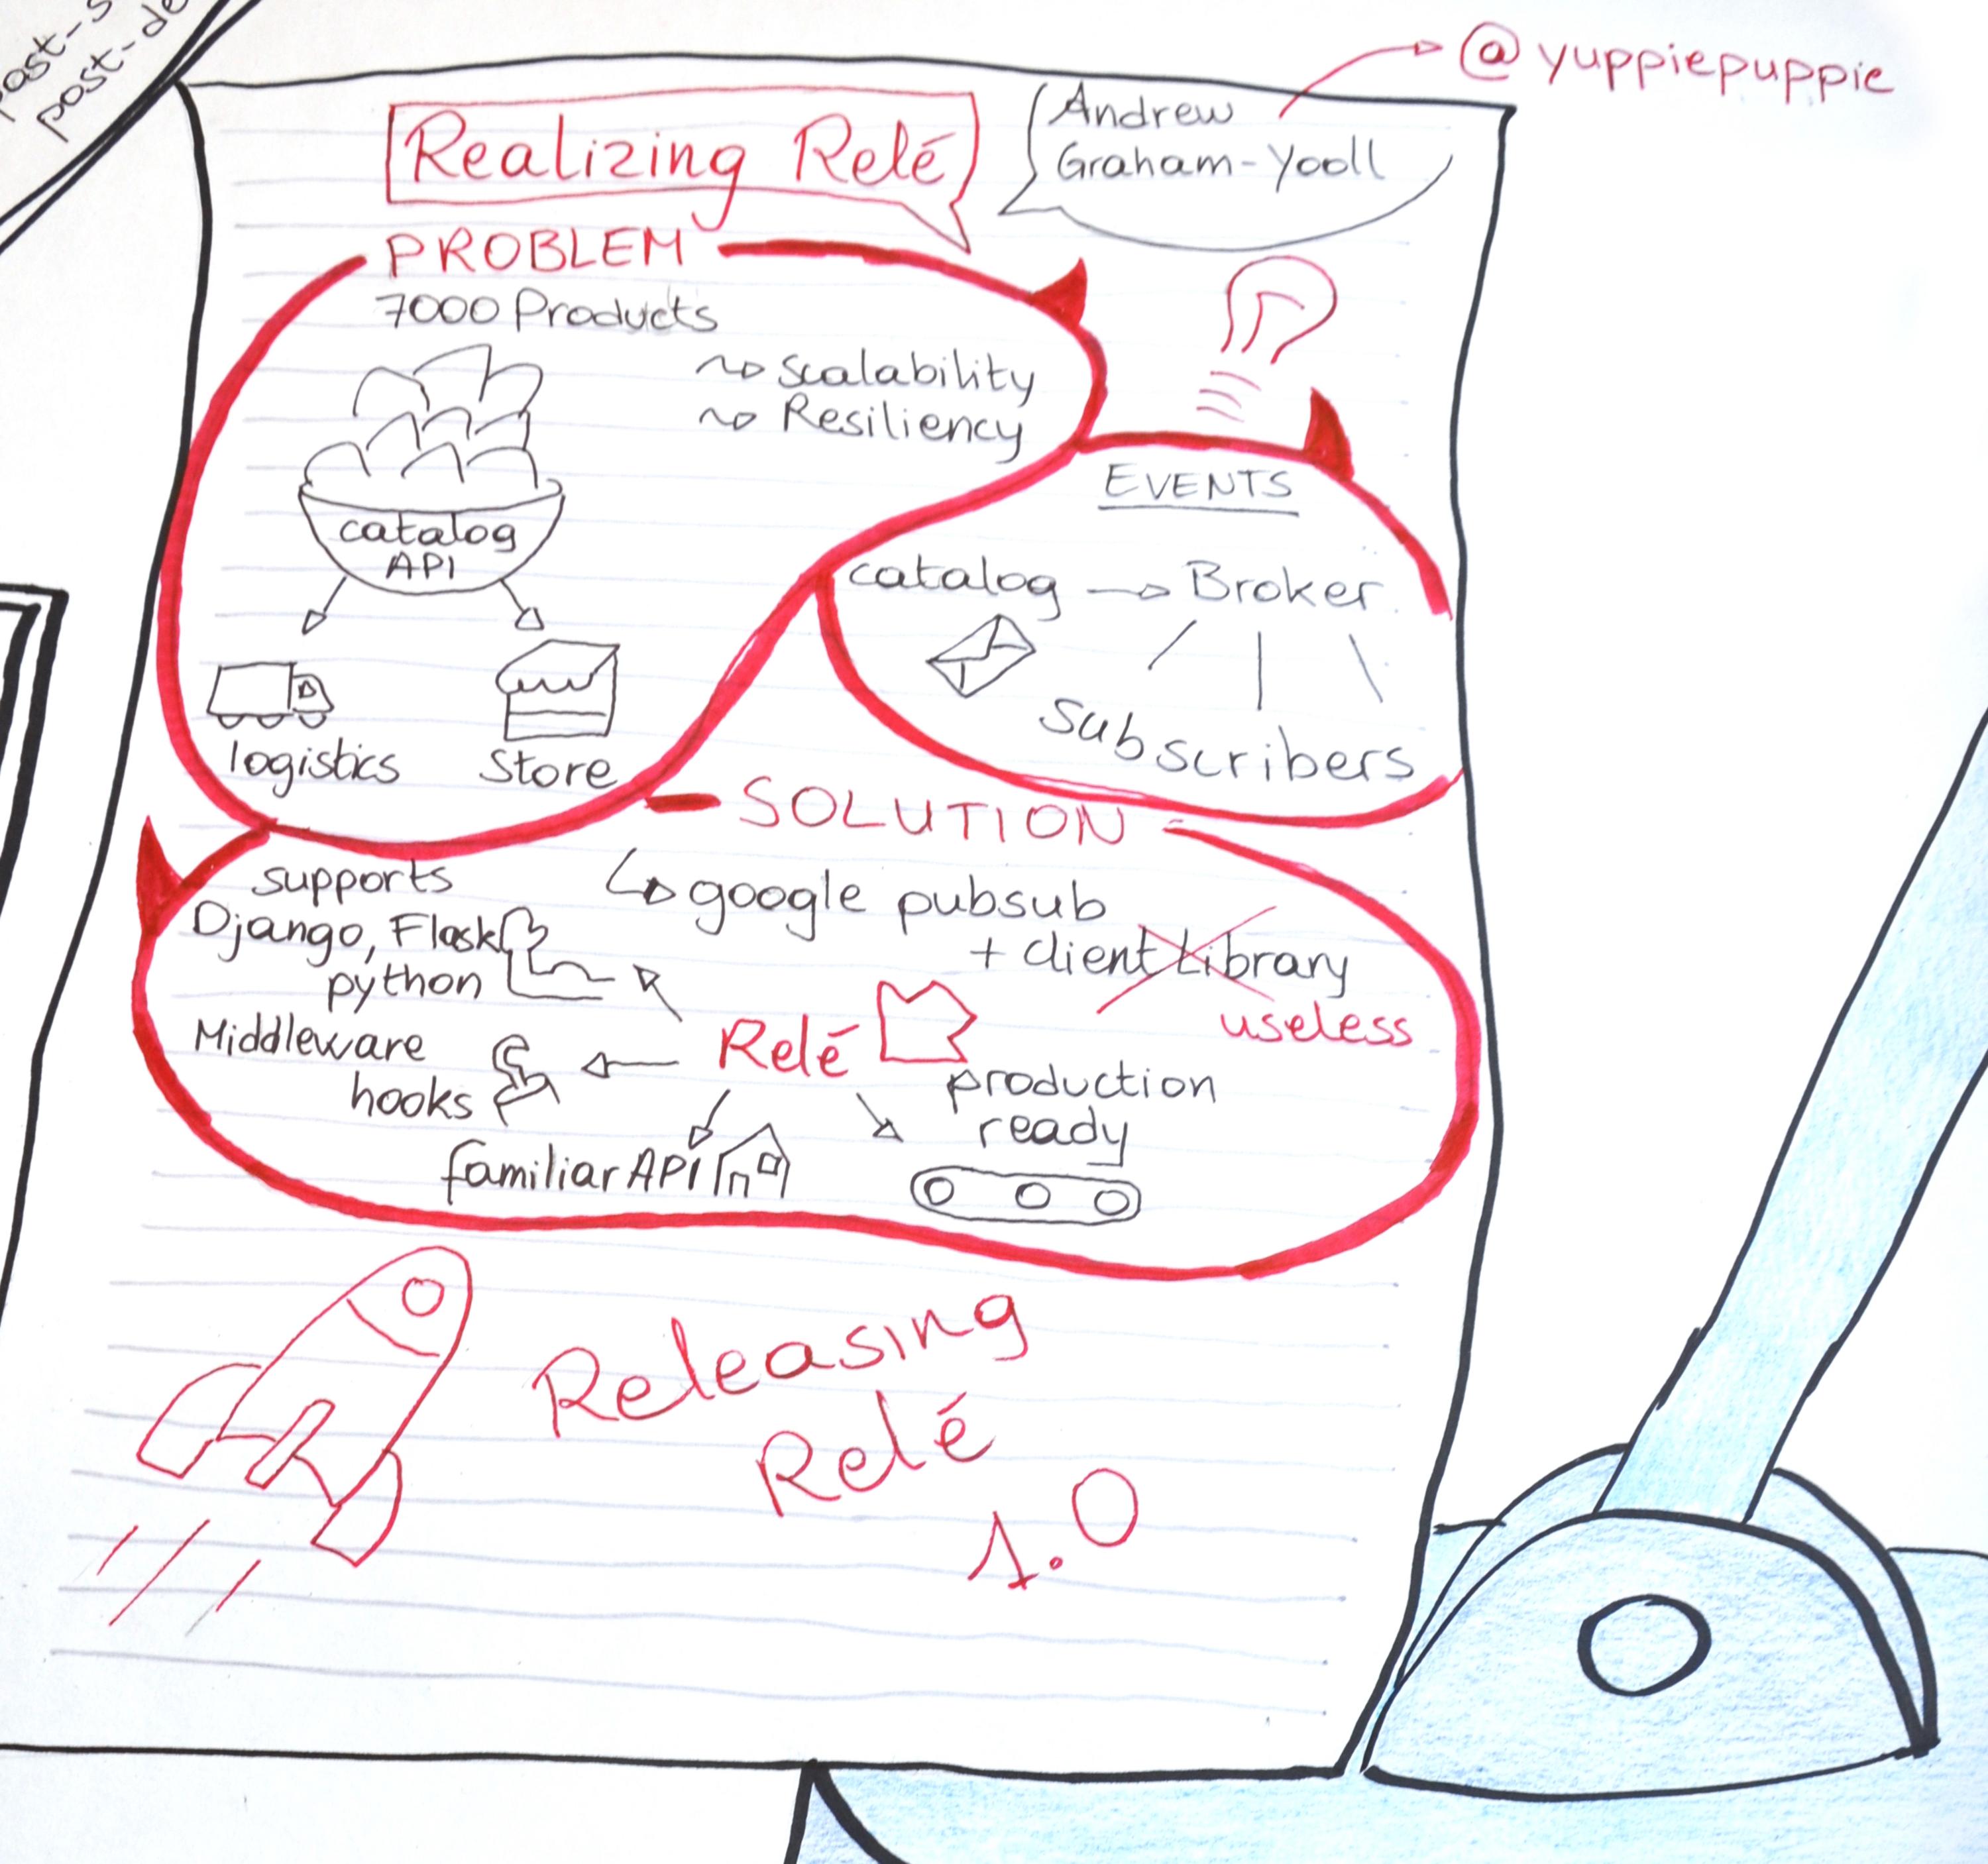 post-
Realizing Relé
Andrew
Graham-Yooll
@yuppiepuppie
PROBLEM
7000 Products
scalability
Resiliency
catalog
API
logistics
Store
EVENTS
catalog → Broker
Subscribers
SOLUTION
google pubsub
+ client Library
useless
supports
Django, Flask
python
Middleware
hooks
Relé
familiar API
production
ready
Releasing
Relé
1.0